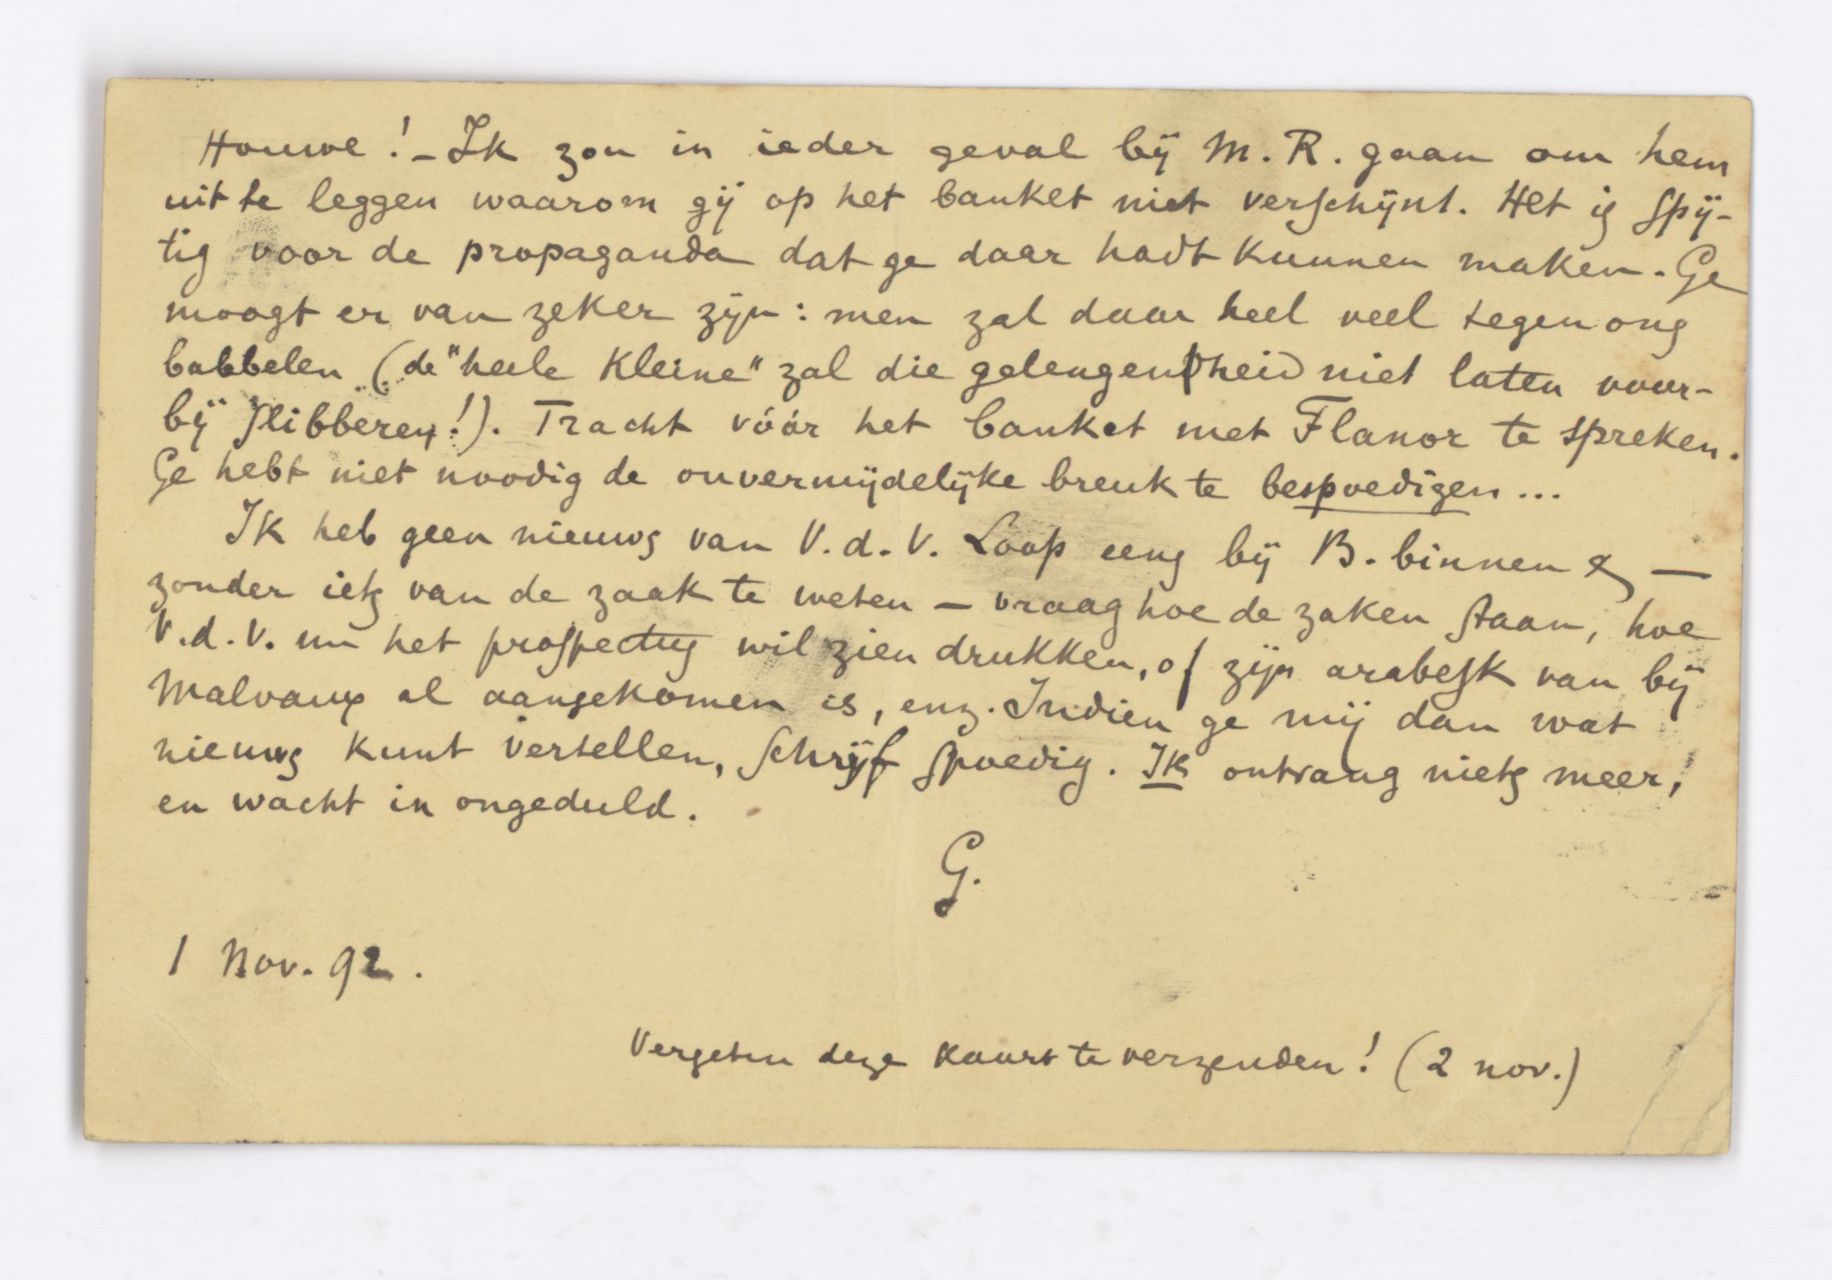 Houwe! - Ik zou in ieder geval bij M. R. gaan om hem
uit te leggen waarom gij op het banket niet verschijnt. Het is spij-
tig voor de propaganda dat ge daar hadt kunnen maken. Ge
moogt er van zeker zijn: men zal daar heel veel tegen ons
babbelen (de "heele kleine" zal die gelengendheid niet laten voor-
bij slibberen!). Tracht vóór het banket met Flanor te spreken.
Ge hebt niet noodig de onvermijdelijke breuk te bespoedigen...
Ik heb geen nieuws van V. d. V. Loop eens bij B. binnen & —
zonder iets van de zaak te weten — vraag hoe de zaken staan, hoe
V. d. V. nu het prospectus wil zien drukken, of zijn arabesk van bij
Malvaux al aangekomen is, enz. Indien ge mij dan wat
nieuws kunt vertellen, schrijf spoedig. Ik ontvang niets meer,
en wacht in ongeduld.
G.
1 Nov. 92.
Vergeten deze kaart te verzenden! (2 nov.)